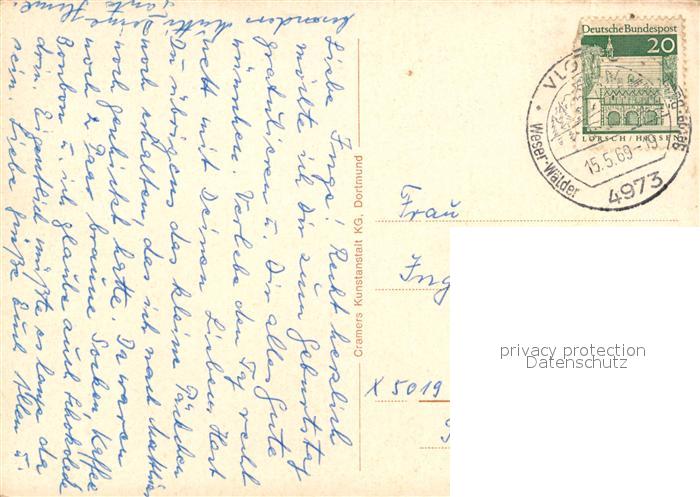 Liebe Inge! Recht herzlich
möchte ich Dir zum Geburtstag
gratulieren u. Dir alles Gute
wünschen. Verlebe den Tag recht
nett mit Deinen Lieben. Hast
Du übrigens das kleine Päckchen
noch erhalten das ich nach
noch geschickt hatte. Da waren
noch 2 Paar braune Socken, Kaffee
Bonbon u. ich glaube auch Schokolade
drin. Eigentlich müßte es lange da
sein. Liebe Grüße Euch Allen u.
besonders Mutti Deine
Tante
Cramers Kunstanstalt KG. Dortmund
Deutsche Bundespost
20
LORSCH/HESSEN
VLO
15.5.69-19
Weser-Wälder
4973
Frau
Ing
X 5019
privacy protection
Datenschutz